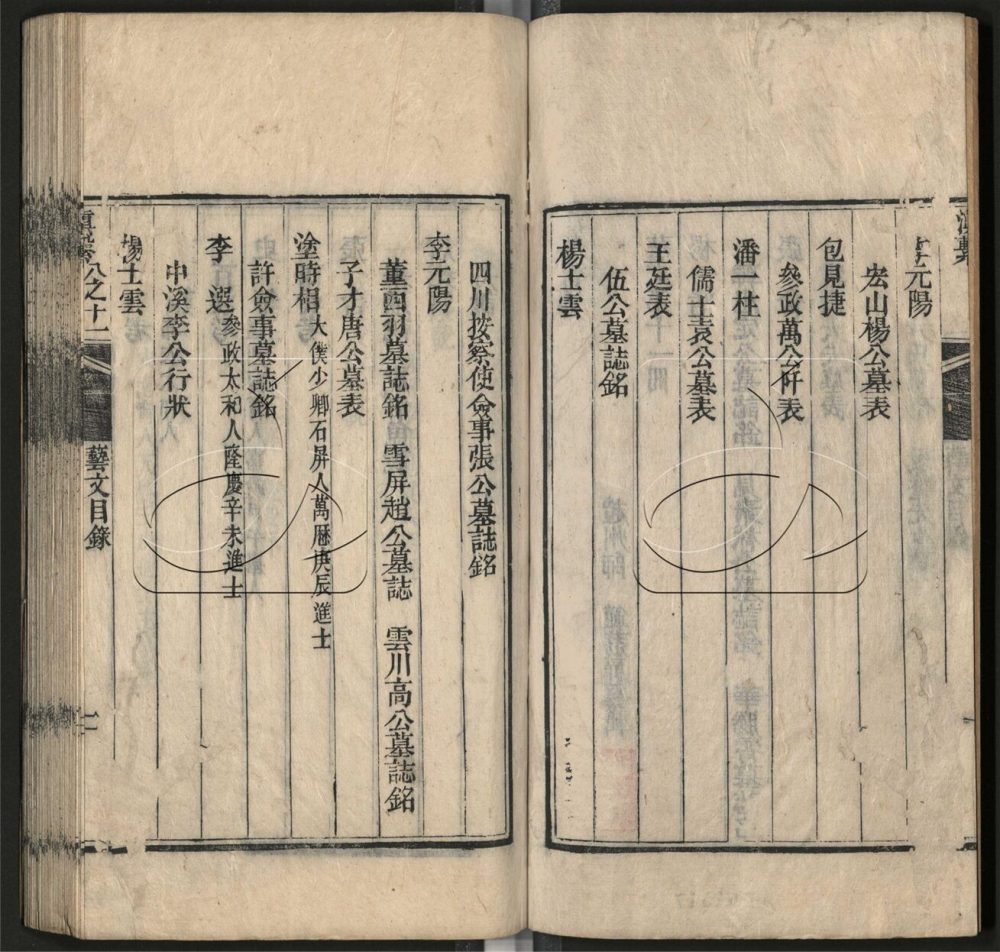 滇繫
李元陽
宏山楊公墓表
包見捷
參政萬公阡表
潘一柱
儒士袁公墓表
王廷表
伍公墓誌銘
楊士雲
四川按察使僉事張公墓誌銘
李元陽
董西羽墓誌銘 雪屏趙公墓誌 雲川高公墓誌銘
子才唐公墓表
塗時相 大僕少卿石屏人萬曆庚辰進士
許僉事墓誌銘
李 選 參政太和人隆慶辛未進士
中溪李公行狀
楊士雲
滇繫 八之十一 藝文目錄